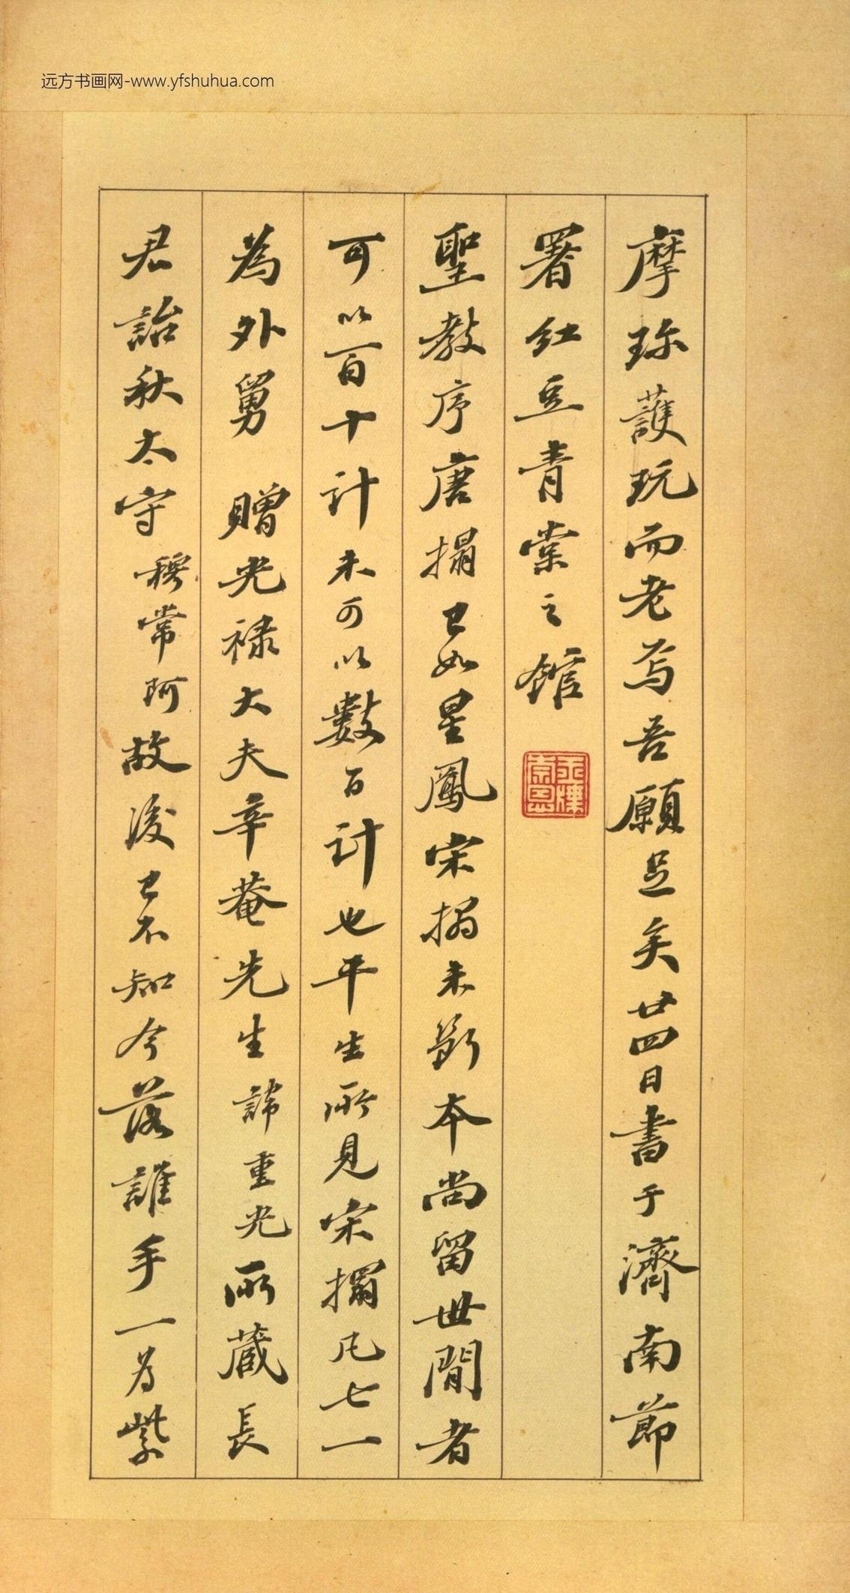 远方书画网-www.yfshuhua.com
摩珎護玩而老焉吾願足矣廿四日書于濟南節
署紅豆青棠之館
聖教序唐搨已如星鳳宋搨未斷本尚留世間者
可以百十計未可以數百計也平生所見宋搨凡七一
為外舅 贈光祿大夫辛菴先生諱重光所藏長
君詒秋太守穆常阿故後已不知今落誰手一為紫